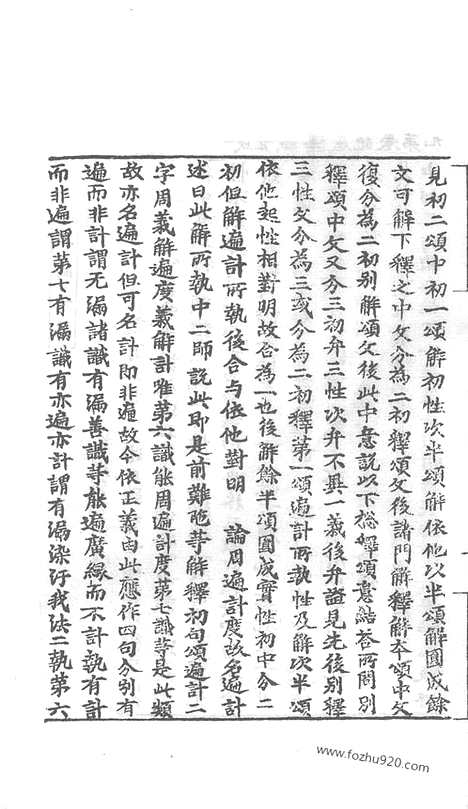 見初二頌中初一頌解初性次半頌解依他以半頌解圓成餘
文可解下釋之中文分為二初釋頌文後諸門解釋解本頌中文
復分為二初別解頌文後此中意說以下總釋頌意結答所問別
釋頌中文又分三初弁三性次弁不異一義後弁證見先後別釋
三性文分為三或分為二初釋第一頌遍計所執性及解次半頌
依他起性相對明故合為一也後解餘半頌圓成實性初中分二
初但解遍計所執後合与依他對明 論周遍計度故名遍計
述曰此解所執中二師說此即是前難陁等解釋初句頌遍計二
字周義解遍度義解計唯第六識能周遍計度第七識等是此類
故亦名遍計但可名計即非遍故今依正義由此應作四句分別有
遍而非計謂无漏諸識有漏善識等能遍廣緣而不計執有計
而非遍謂第七有漏識有亦遍亦計謂有漏染汙我法二執第六
www.fozhu920.com